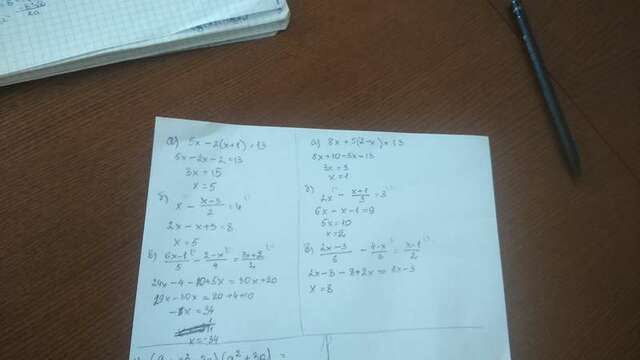 а) 5x - 2(x+1) = 13
5x - 2x - 2 = 13
3x = 15
x = 5
б) x - \frac{x-3}{2} = 4
2x - x + 3 = 8
x = 5
в) \frac{6x-1}{5} - \frac{2-x}{4} = \frac{3x+2}{2}
24x - 4 - 10 + 5x = 30x + 20
29x - 30x = 20 + 4 + 10
-x = 34
x = -34
а) 8x + 5(2-x) = 13
8x + 10 - 5x = 13
3x = 3
x = 1
б) 2x - \frac{x+1}{3} = 3
6x - x - 1 = 9
5x = 10
x = 2
в) \frac{2x-3}{6} - \frac{4-x}{3} = \frac{x-1}{2}
2x - 3 - 8 + 2x = 3x - 3
x = 8